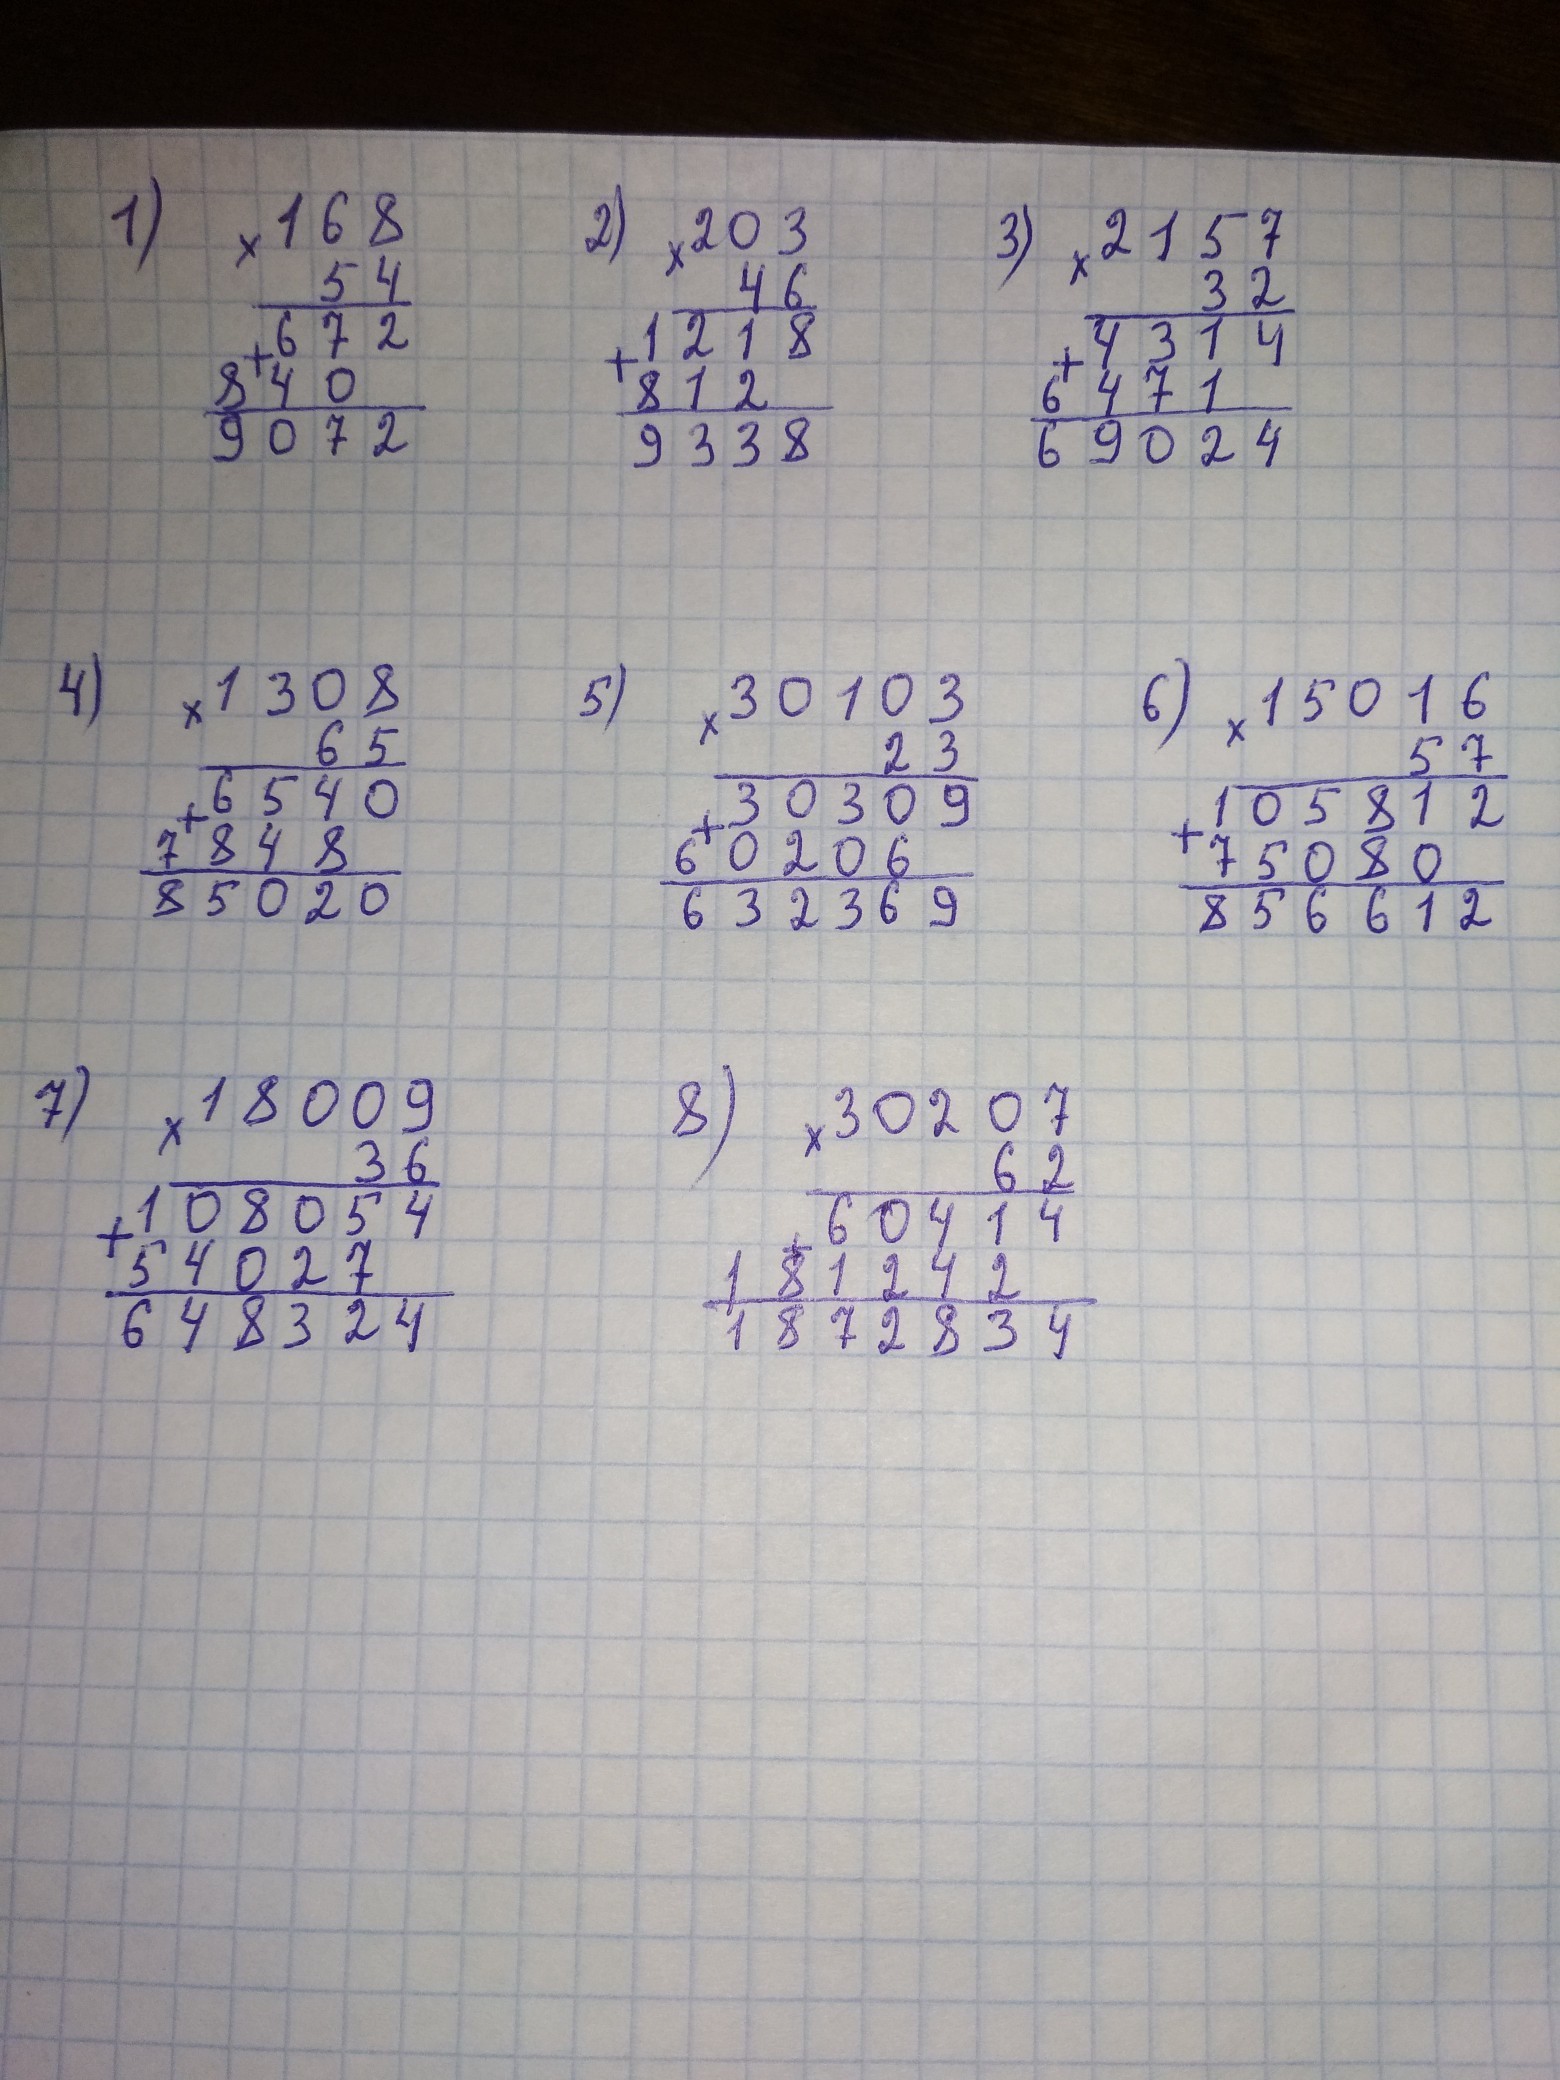 1) × 168
54
+ 672
840
9072
2) × 203
46
+ 1218
812
9338
3) × 2157
32
+ 4314
6471
69024
4) × 1308
65
+ 6540
7848
85020
5) × 30103
23
+ 30309
60206
632369
6) × 15016
57
+ 105812
75080
856612
7) × 18009
36
+ 108054
54027
648324
8) × 30207
62
+ 60414
181242
1872834